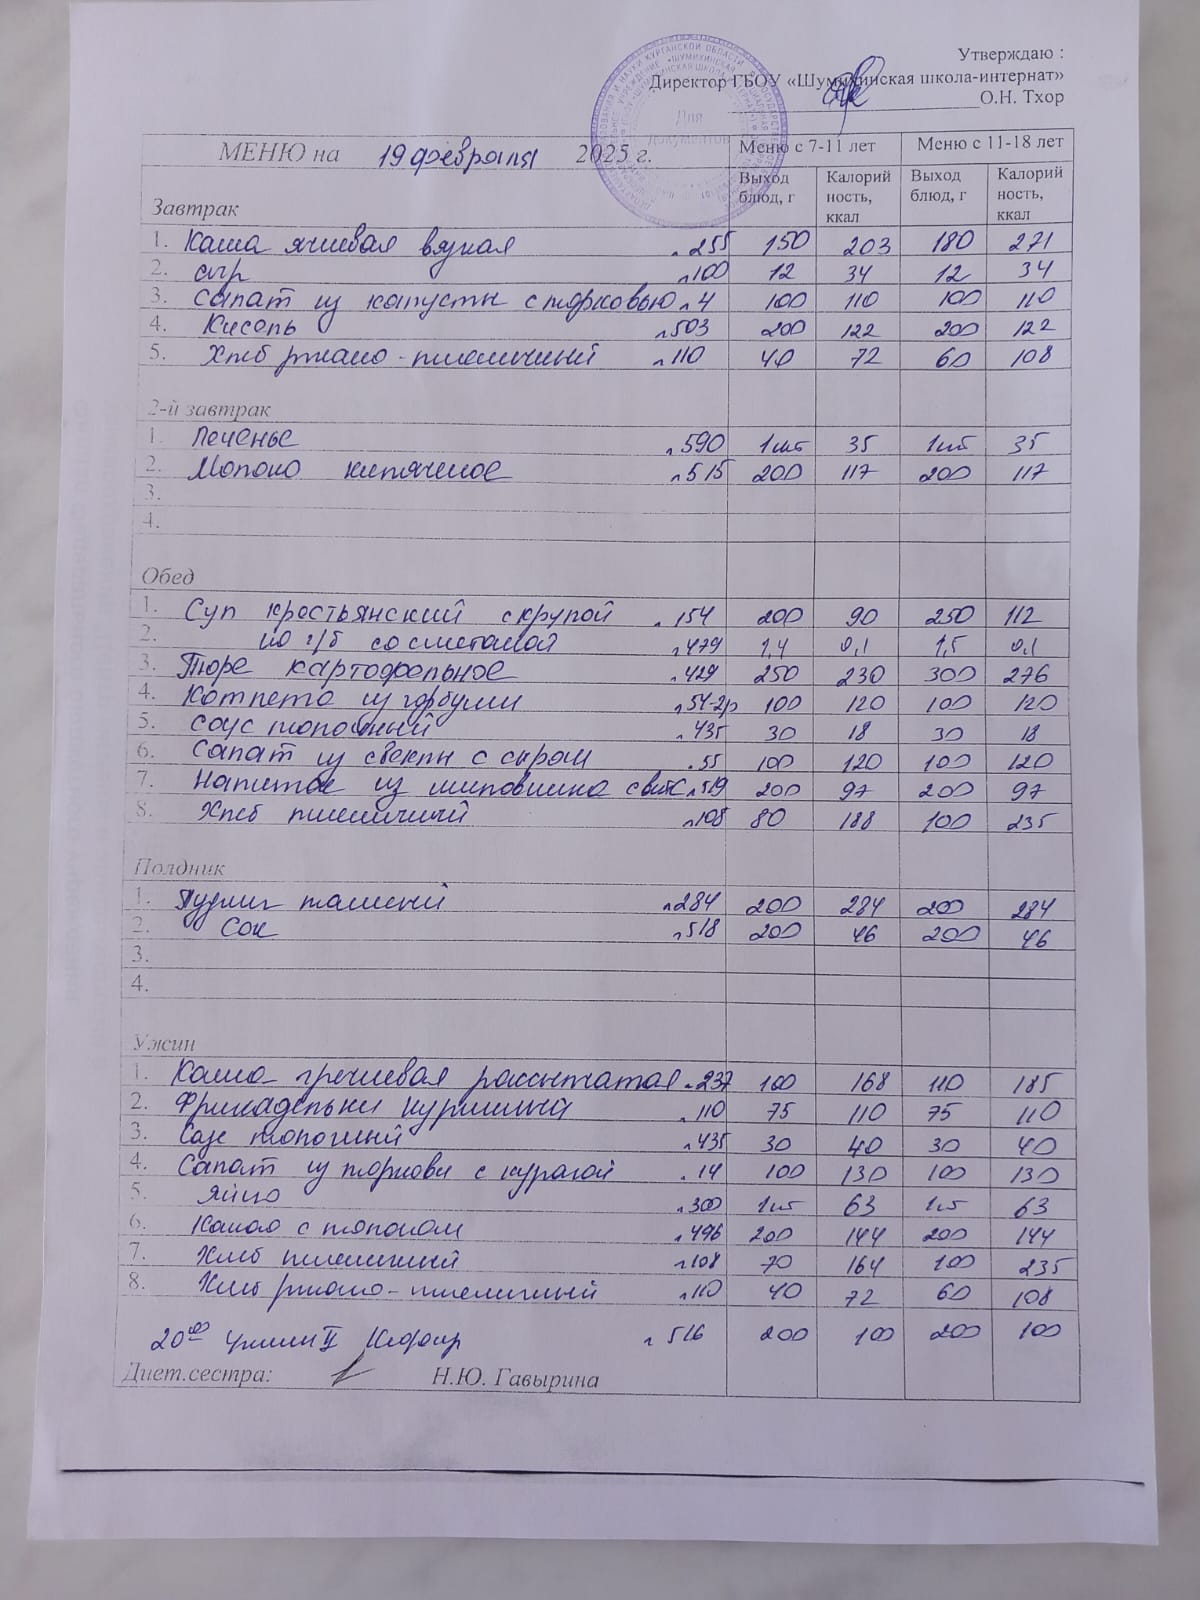 Утверждаю :
Директор ГБОУ «Шумихинская школа-интернат»
О.Н. Тхор
Для документов
МЕНЮ на 19 февраля 2025 г. Меню с 7-11 лет Меню с 11-18 лет
Завтрак Выход блюд, г Калорий ность, ккал Выход блюд, г Калорий ность, ккал
1. Каша ячневая вязкая л 255 150 203 180 271
2. сыр л 100 12 34 12 34
3. Салат из капусты с морковью л 4 100 110 100 110
4. Кисель л 503 200 122 200 122
5. Хлеб ржано-пшеничный л 110 40 72 60 108
2-й завтрак
1. Печенье л 590 1шт 35 1шт 35
2. Молоко кипяченое л 515 200 117 200 117
3.
4.
Обед
1. Суп крестьянский с крупой л 154 200 90 250 112
2. со сметаной л 479 1,4 0,1 1,5 0,1
3. Пюре картофельное л 429 250 230 300 276
4. Котлета из горбуши л 54-2р 100 120 100 120
5. Соус молочный л 435 30 18 30 18
6. Салат из свеклы с сыром л 55 100 120 100 120
7. Напиток из шиповника л 519 200 97 200 97
8. Хлеб пшеничный л 108 80 188 100 235
Полдник
1. Пудинг манный л 284 200 284 200 284
2. Сок л 518 200 46 200 46
3.
4.
Ужин
1. Каша гречневая рассыпчатая л 237 100 168 110 185
2. Фрикадельки куриные л 110 75 110 75 110
3. Соус молочный л 435 30 40 30 40
4. Салат из моркови с курагой л 14 100 130 100 130
5. Яйцо л 300 1шт 63 1шт 63
6. Какао с молоком л 496 200 144 200 144
7. Хлеб пшеничный л 108 70 164 100 235
8. Хлеб ржано-пшеничный л 110 40 72 60 108
20⁰⁰ Ужин II Кефир л 516 200 100 200 100
Диет.сестра: Н.Ю. Гавырина